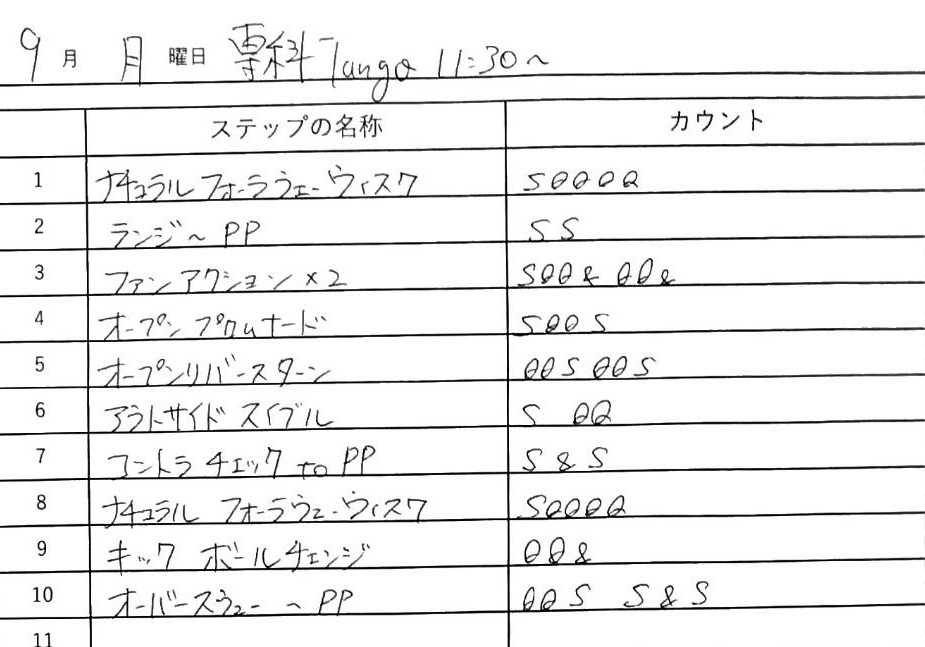 9月 月曜日 専科 Tango 11:30~
ステップの名称 カウント
1 ナチュラル フォーラウェーウィスク SQQQQ
2 ランジ～PP SS
3 ファンアクション×2 SQQ& QQ&
4 オープン プロムナード SQQS
5 オープンリバースターン QQS QQS
6 アウトサイド スイブル S QQ
7 コントラ チェック to PP S&S
8 ナチュラル フォーラウェーウィスク SQQQQ
9 キック ボールチェンジ QQ&
10 オーバースウェー ～PP QQS S&S
11